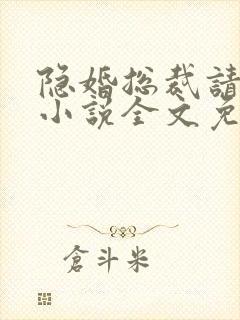 隐婚总裁請
小说全文免
倉斗米